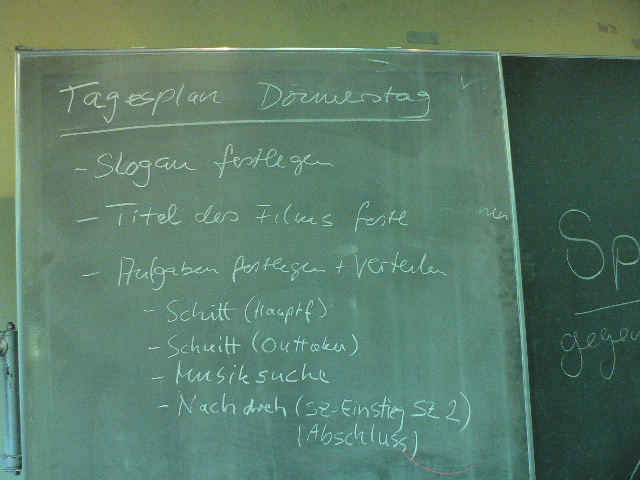 Tagesplan Donnerstag
- Slogan festlegen
- Titel des Films festl
- Aufgaben festlegen + verteilen
- Schitt (Hauptf)
- Schnitt (Outtakes)
- Musiksuche
- Nachdreh (SZ-Einstieg SZ 2)
(Abschluss)
Sp
gegen